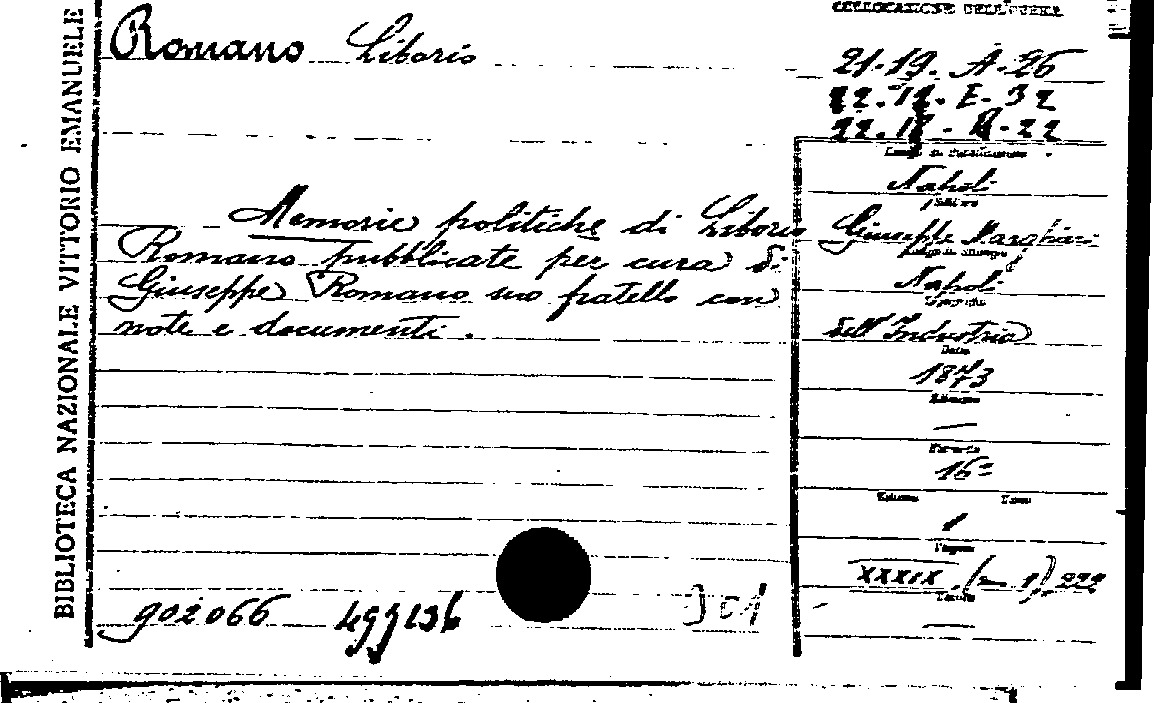 BIBLIOTECA NAZIONALE VITTORIO EMANUELE
Romano Liborio
Memorie politiche di Liborio
Romano pubblicate per cura di
Giuseppe Romano suo fratello con
note e documenti.
902066
301
COLLOCAZIONE DELL'OPERA
21.19. A-26
22.12. E-32
22.18.
Luogo di pubblicazione
Napoli
Editore
Giuseppe Marghieri
Luogo di stampa
Napoli
Tipografia
dell'Industria
Data
1873
Edizione
—
Formato
16º
Volume Tomo
1
Pagine
XXXIX, 222
Tavole
—